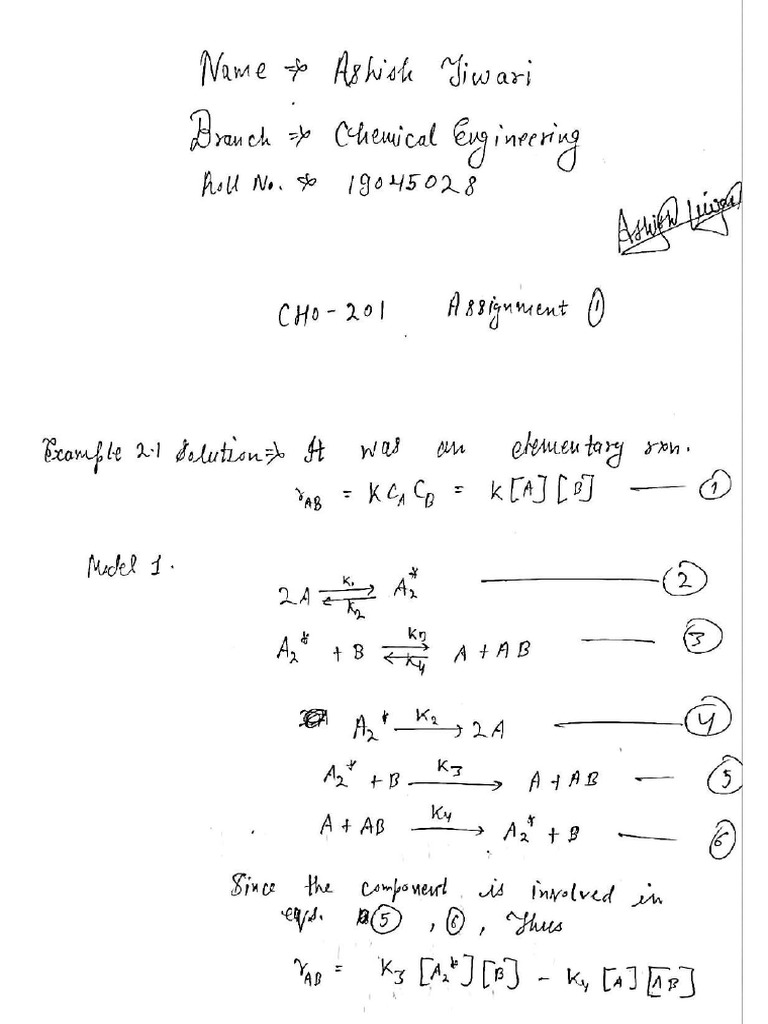 Name ⇒ Ashish Tiwari
Branch ⇒ Chemical Engineering
Roll No. ⇒ 19045028
Ashish Tiwari
CHO-201 Assignment ①
Example 2.1 Solution ⇒ It was an elementary rxn.
r_AB = K C_A C_B = K[A][B] — ①
Model 1.
2A ⇌ A₂* — ②
K₁
K₂
A₂* + B ⇌ A + AB — ③
K₃
K₄
A₂* —K₂→ 2A — ④
A₂* + B —K₃→ A + AB — ⑤
A + AB —K₄→ A₂* + B — ⑥
Since the component is involved in
eqs. ⑤, ⑥, Thus
r_AB = K₃ [A₂*][B] - K₄ [A][AB]